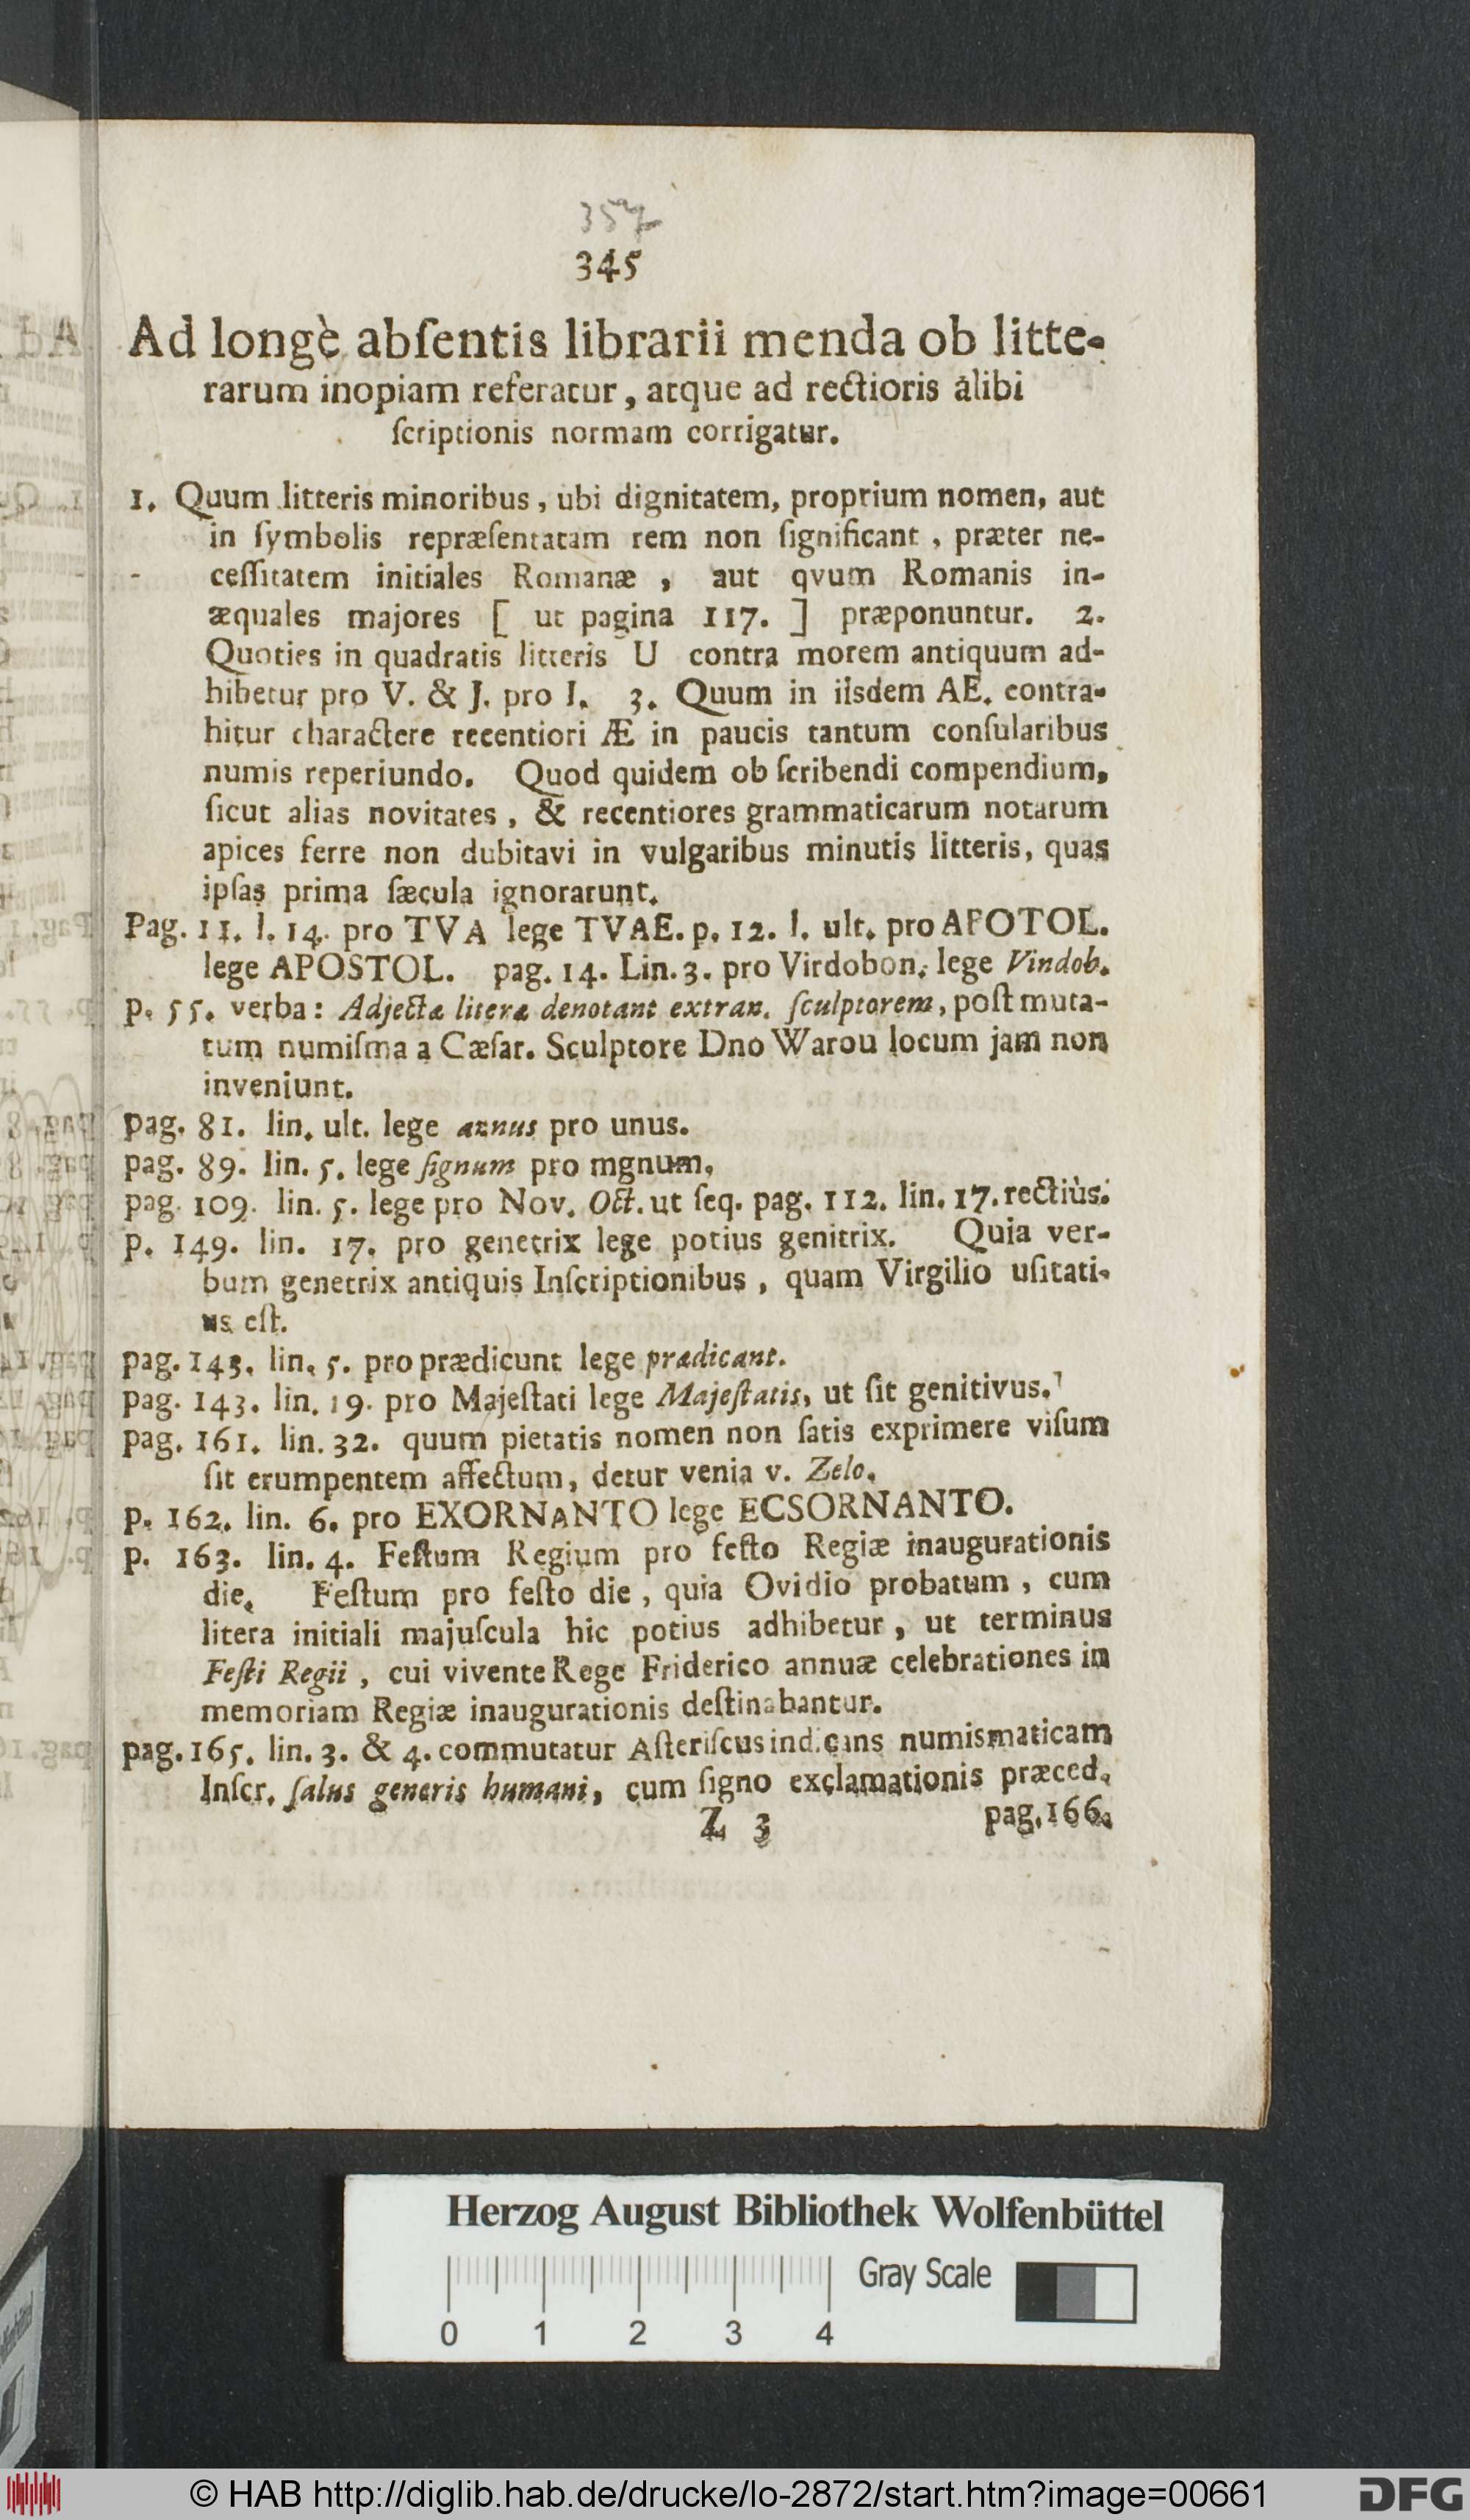 357
345
Ad longè abſentis librarii menda ob litte-
rarum inopiam referatur, atque ad rectioris alibi
ſcriptionis normam corrigatur.
1. Quum litteris minoribus, ubi dignitatem, proprium nomen, aut
in ſymbolis repræſentatam rem non ſignificant, præter ne-
ceſſitatem initiales Romanæ, aut qvum Romanis in-
æquales majores [ ut pagina 117. ] præponuntur. 2.
Quoties in quadratis litteris U contra morem antiquum ad-
hibetur pro V. & J. pro I. 3. Quum in iisdem AE. contra-
hitur charactere recentiori Æ in paucis tantum conſularibus
numis reperiundo. Quod quidem ob ſcribendi compendium,
ſicut alias novitates, & recentiores grammaticarum notarum
apices ferre non dubitavi in vulgaribus minutis litteris, quas
ipſas prima ſæcula ignorarunt.
Pag. 11. l. 14. pro TVA lege TVAE. p. 12. l. ult. pro APOTOL.
lege APOSTOL. pag. 14. Lin. 3. pro Virdobon. lege Vindob.
p. 55. verba: Adjectæ literæ denotant extran. ſculptorem, poſt muta-
tum numiſma a Cæſar. Sculptore Dno Warou locum jam non
inveniunt.
pag. 81. lin. ult. lege annus pro unus.
pag. 89. lin. 5. lege ſignum pro mgnum.
pag. 109. lin. 5. lege pro Nov. Oct. ut ſeq. pag. 112. lin. 17. rectiùs.
p. 149. lin. 17. pro genetrix lege potius genitrix. Quia ver-
bum genetrix antiquis Inſcriptionibus, quam Virgilio uſitati-
us eſt.
pag. 143. lin. 5. pro prædicunt lege prædicant.
pag. 143. lin. 19. pro Majeſtati lege Majeſtatis, ut ſit genitivus.
pag. 161. lin. 32. quum pietatis nomen non ſatis exprimere viſum
ſit erumpentem affectum, detur venia v. Zelo.
p. 162. lin. 6. pro EXORNANTO lege ECSORNANTO.
p. 163. lin. 4. Feſtum Regium pro feſto Regiæ inaugurationis
die. Feſtum pro feſto die, quia Ovidio probatum, cum
litera initiali majuſcula hic potius adhibetur, ut terminus
Feſti Regii, cui vivente Rege Friderico annuæ celebrationes in
memoriam Regiæ inaugurationis deſtinabantur.
pag. 165. lin. 3. & 4. commutatur Aſteriſcus indicans numismaticam
Inſcr. ſalus generis humani, cum ſigno exclamationis præced.
Z 3 pag. 166.
Herzog August Bibliothek Wolfenbüttel
Gray Scale
0 1 2 3 4
© HAB http://diglib.hab.de/drucke/lo-2872/start.htm?image=00661
DFG